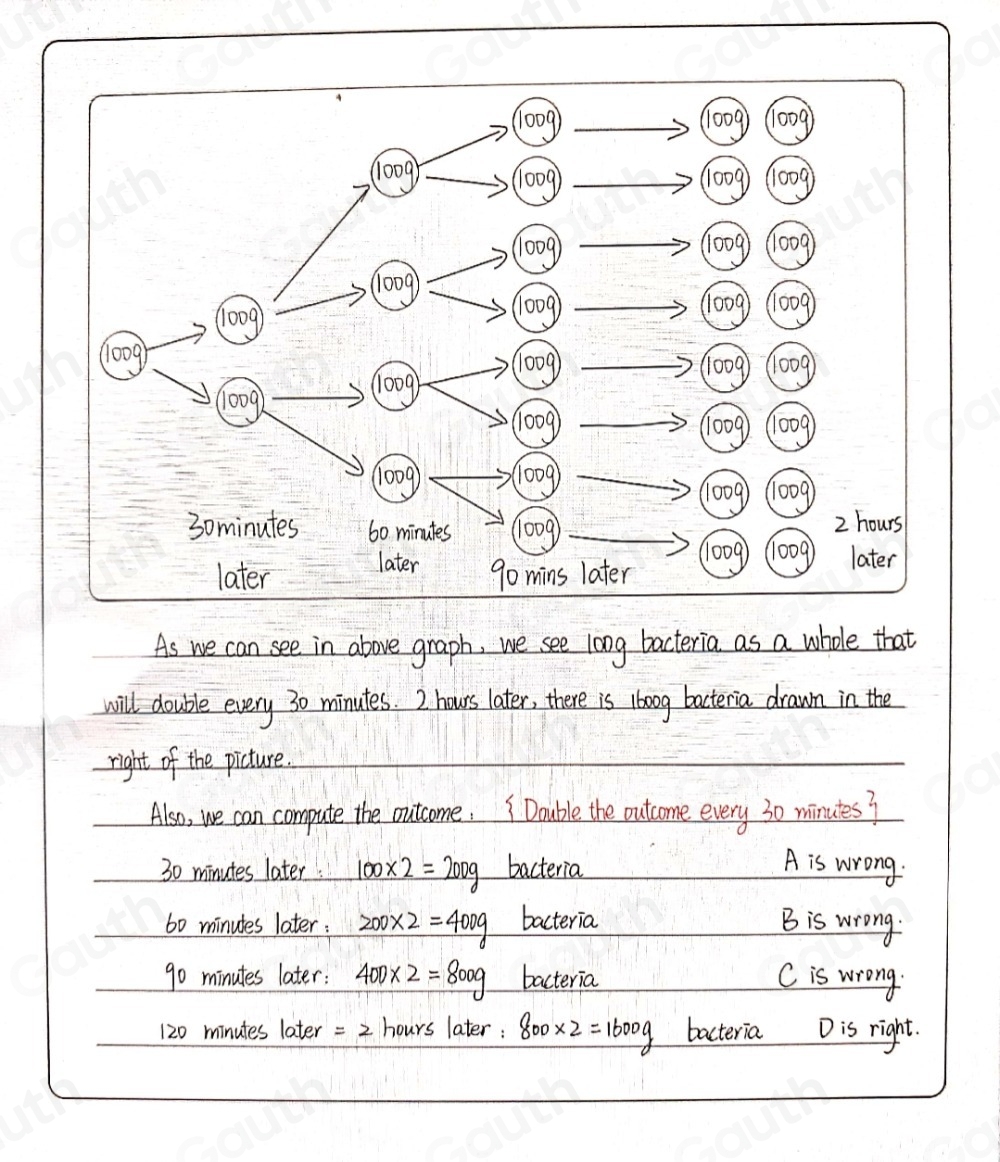 100g
100g 100g
100g 100g 100g 100g
100g 100g 100g 100g 100g 100g 100g 100g
100g 100g
100g 100g
100g 100g
100g 100g
100g 100g
100g 100g
100g 100g
100g 100g
30 minutes
later
60 minutes
later
90 mins later
2 hours
later
As we can see in above graph, we see 100g bacteria as a whole that
will double every 30 minutes. 2 hours later, there is 1600g bacteria drawn in the
right of the picture.
Also, we can compute the outcome: {Double the outcome every 30 minutes}
30 minutes later: 100×2 = 200g bacteria A is wrong.
60 minutes later: 200×2 = 400g bacteria B is wrong.
90 minutes later: 400×2 = 800g bacteria C is wrong.
120 minutes later = 2 hours later: 800×2 = 1600g bacteria D is right.
Gauth